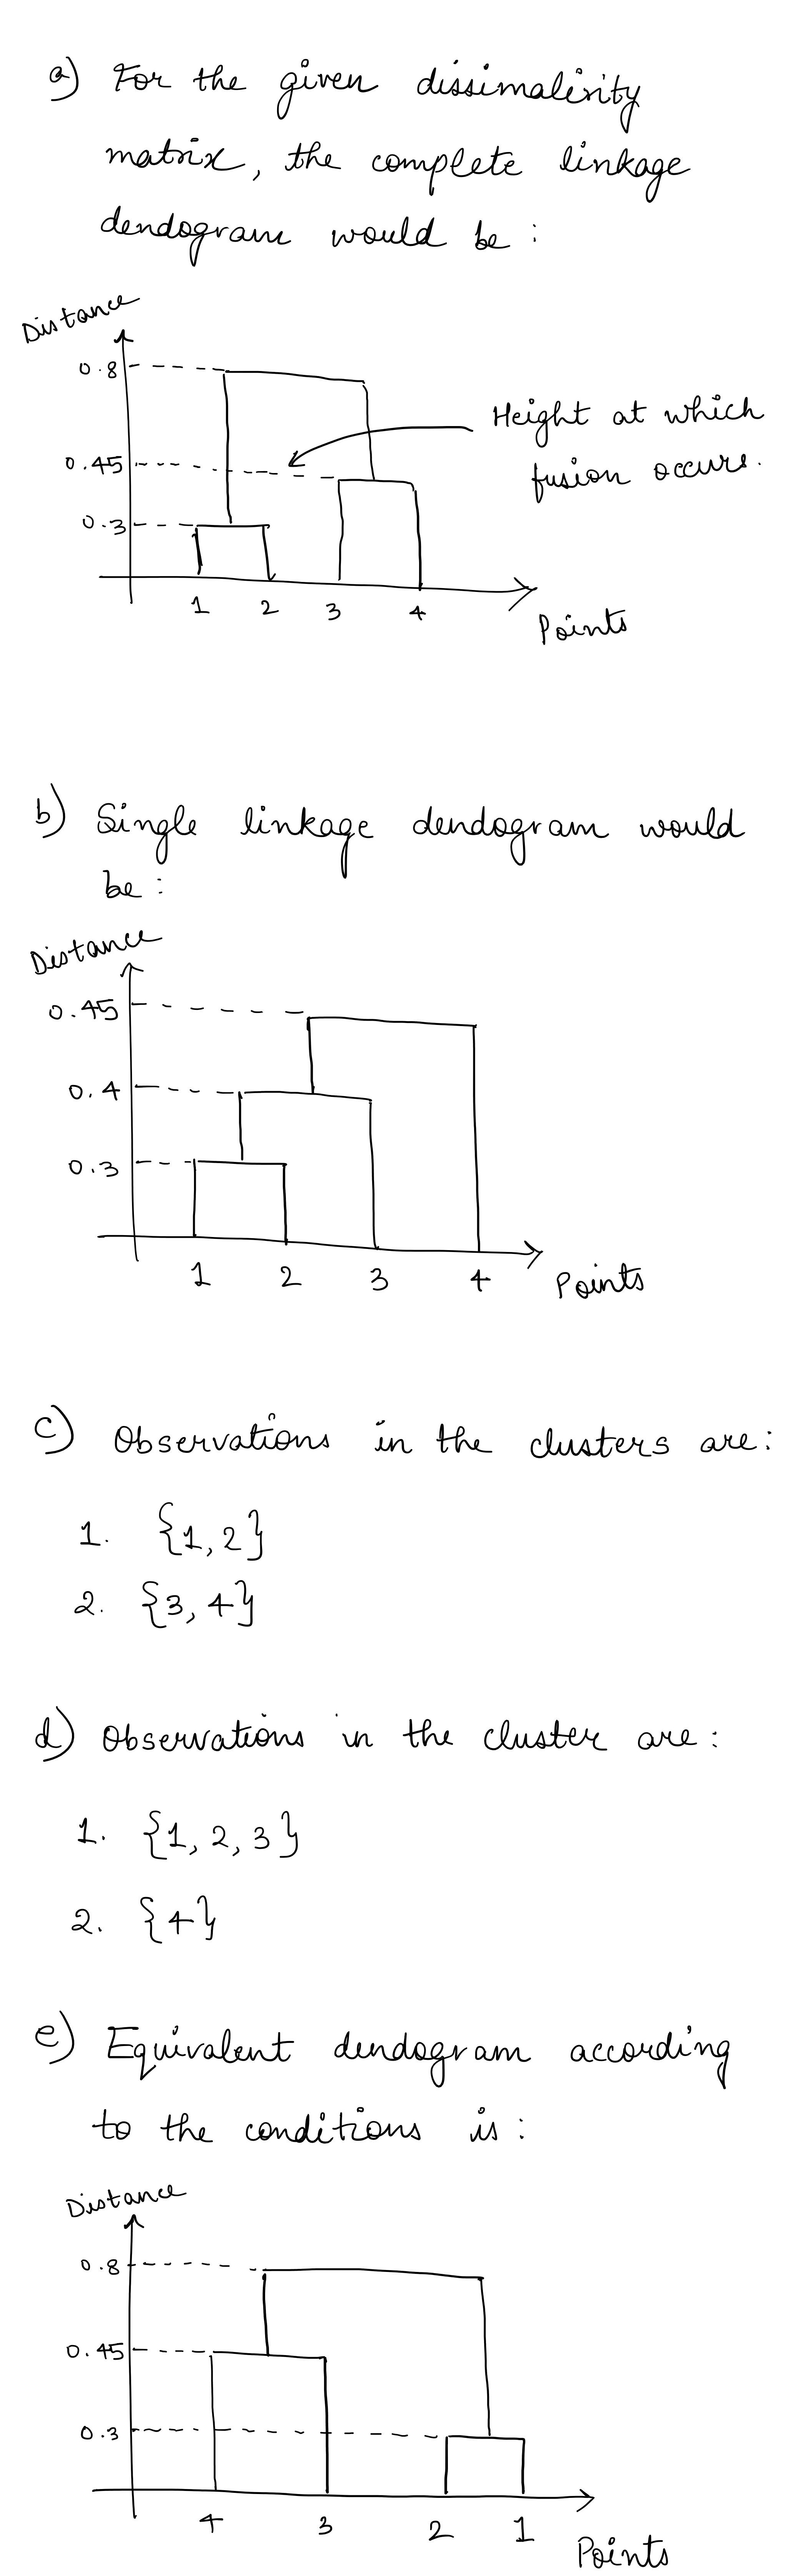 a) For the given dissimalirity
matrix, the complete linkage
dendogram would be :
Distance
0.8
0.45
0.3
Height at which
fusion occurs.
1 2 3 4
Points
b) Single linkage dendogram would
be :
Distance
0.45
0.4
0.3
1 2 3 4 Points
c) Observations in the clusters are :
1. {1, 2}
2. {3, 4}
d) Observations in the cluster are :
1. {1, 2, 3}
2. {4}
e) Equivalent dendogram according
to the conditions is :
Distance
0.8
0.45
0.3
4 3 2 1
Points